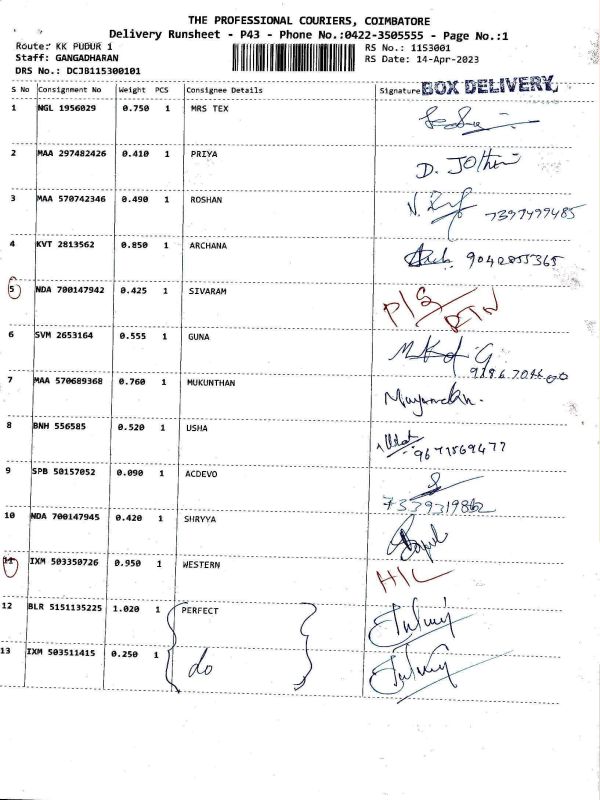 THE PROFESSIONAL COURIERS, COIMBATORE
Delivery Runsheet - P43 - Phone No.:0422-3505555 - Page No.:1
Route: KK PUDUR 1 RS No.: 1153001
Staff: GANGADHARAN RS Date: 14-Apr-2023
DRS No.: DCJB115300101
S No Consignment No Weight PCS Consignee Details Signature BOX DELIVERY
1 NGL 1956029 0.750 1 MRS TEX
2 MAA 297482426 0.410 1 PRIYA D.
3 MAA 570742346 0.490 1 ROSHAN 7397499485
4 KVT 2813562 0.850 1 ARCHANA 9042855365
5 NDA 700147942 0.425 1 SIVARAM P/S RTN
6 SVM 2653164 0.555 1 GUNA
7 MAA 570689368 0.760 1 MUKUNTHAN
8 BNH 556585 0.520 1 USHA
9 SPB 50157052 0.090 1 ACDEVO
10 NDA 700147945 0.420 1 SHRYYA
11 IXM 503350726 0.950 1 WESTERN H/L
12 BLR 5151135225 1.020 1 PERFECT
13 IXM 503511415 0.250 1 do